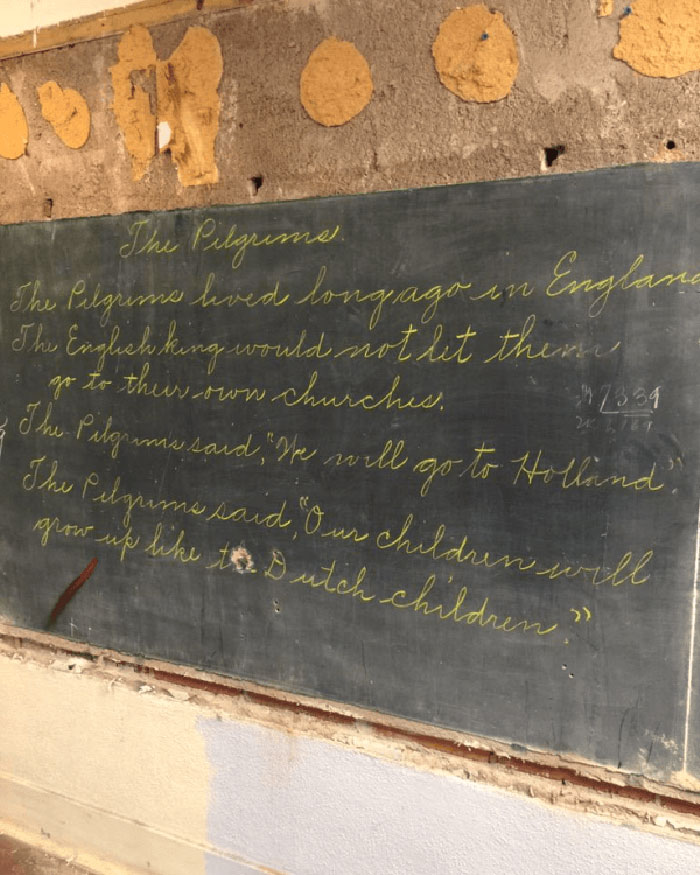 The Pilgrims.
The Pilgrims lived long ago in England
The English king would not let them
go to their own churches.
7339
The Pilgrims said, "We will go to Holland."
The Pilgrims said, "Our children will
grow up like to Dutch children."